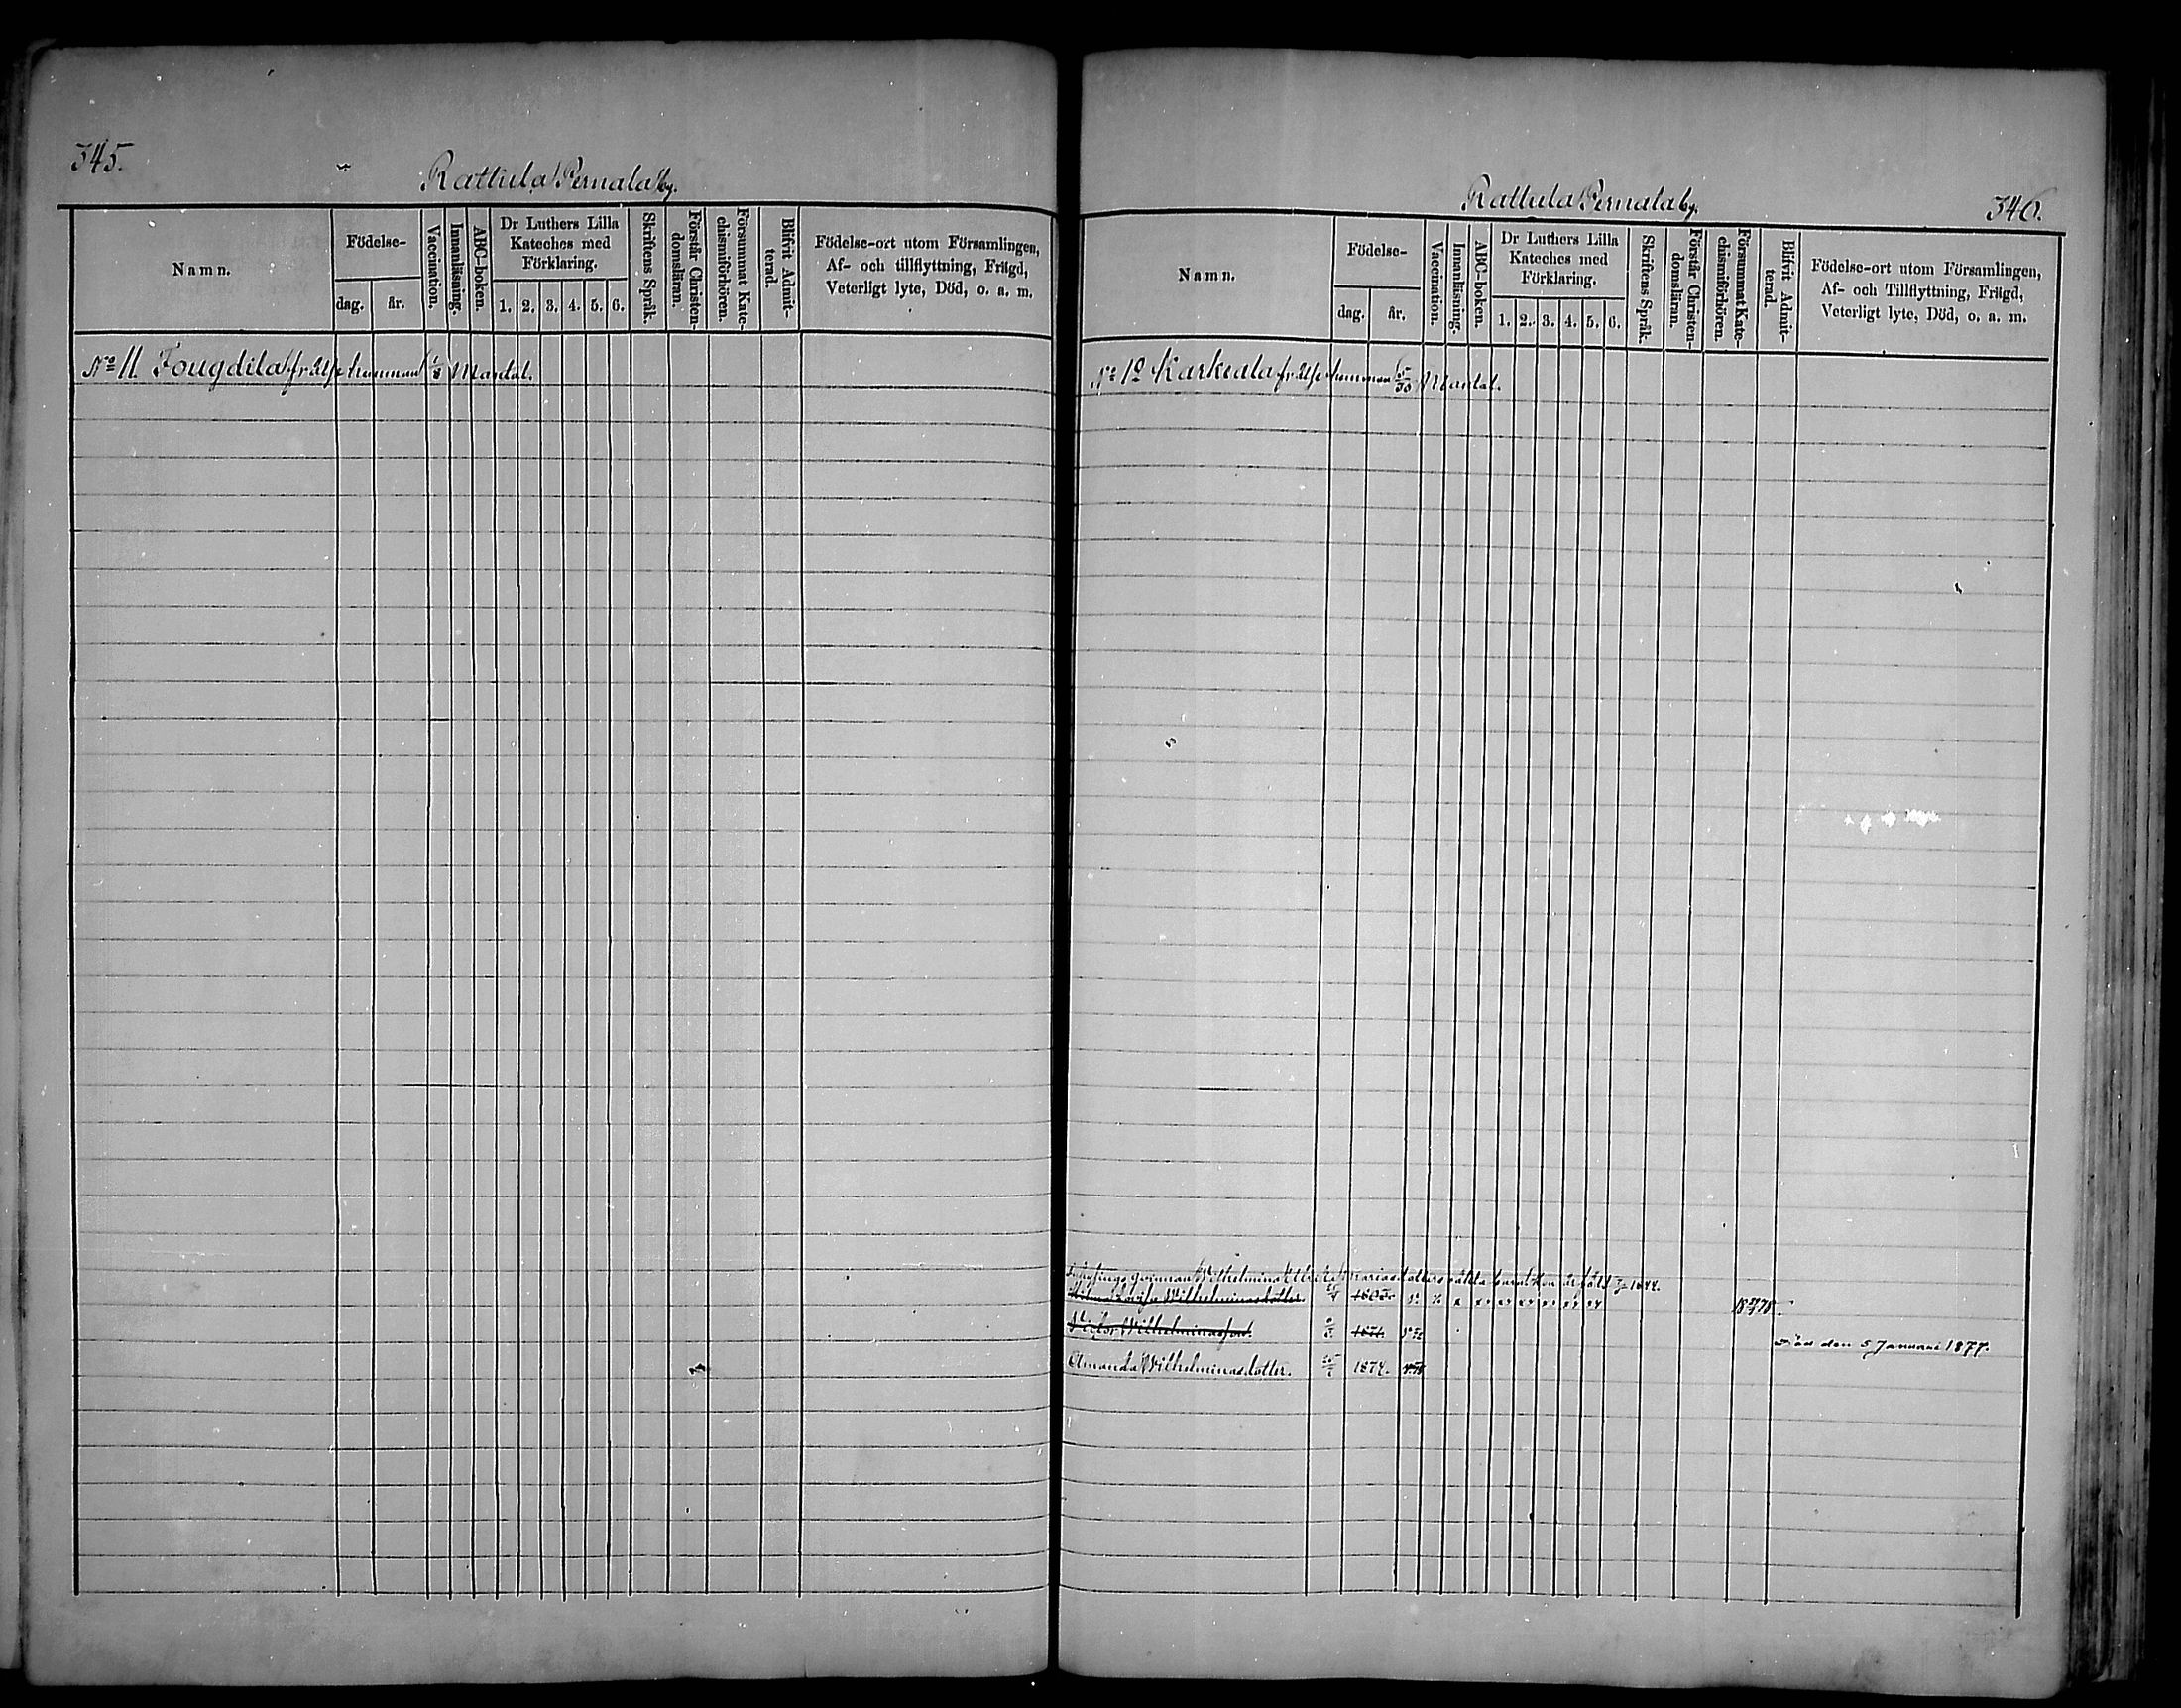 345.
Rattula Pernala by.
Namn.
Födelse-
dag.
år.
Vaccination.
Innanläsning.
ABC-boken.
Dr Luthers Lilla
Kateches med
Förklaring.
1. 2. 3. 4. 5. 6.
Skriftens Språk.
Förstår Christen-
domsläran.
Försummat Kate-
chismiförhören.
Blifvit Admit-
terad.
Födelse-ort utom Församlingen,
Af- och tillflyttning, Frägd,
Veterligt lyte, Död, o. a. m.
No 11 Fougdila frälsehemman 1/8 Mantal.
Rattula Pernala by.
346.
Namn.
Födelse-
dag.
år.
Vaccination.
Innanläsning.
ABC-boken.
Dr Luthers Lilla
Kateches med
Förklaring.
1. 2. 3. 4. 5. 6.
Skriftens Språk.
Förstår Christen-
domsläran.
Försummat Kate-
chismiförhören.
Blifvit Admit-
terad.
Födelse-ort utom Församlingen,
Af- och Tillflyttning, Frägd,
Veterligt lyte, Död, o. a. m.
No 12 Karkeala frälsehemman Mantal.
qvinnan Wilhelmina
Lovisa Wilhelminasdotter.
Victor Wilhelminasson. 1871.
Död den 5 Januari 1877.
Amanda Wilhelminasdotter. 1874.